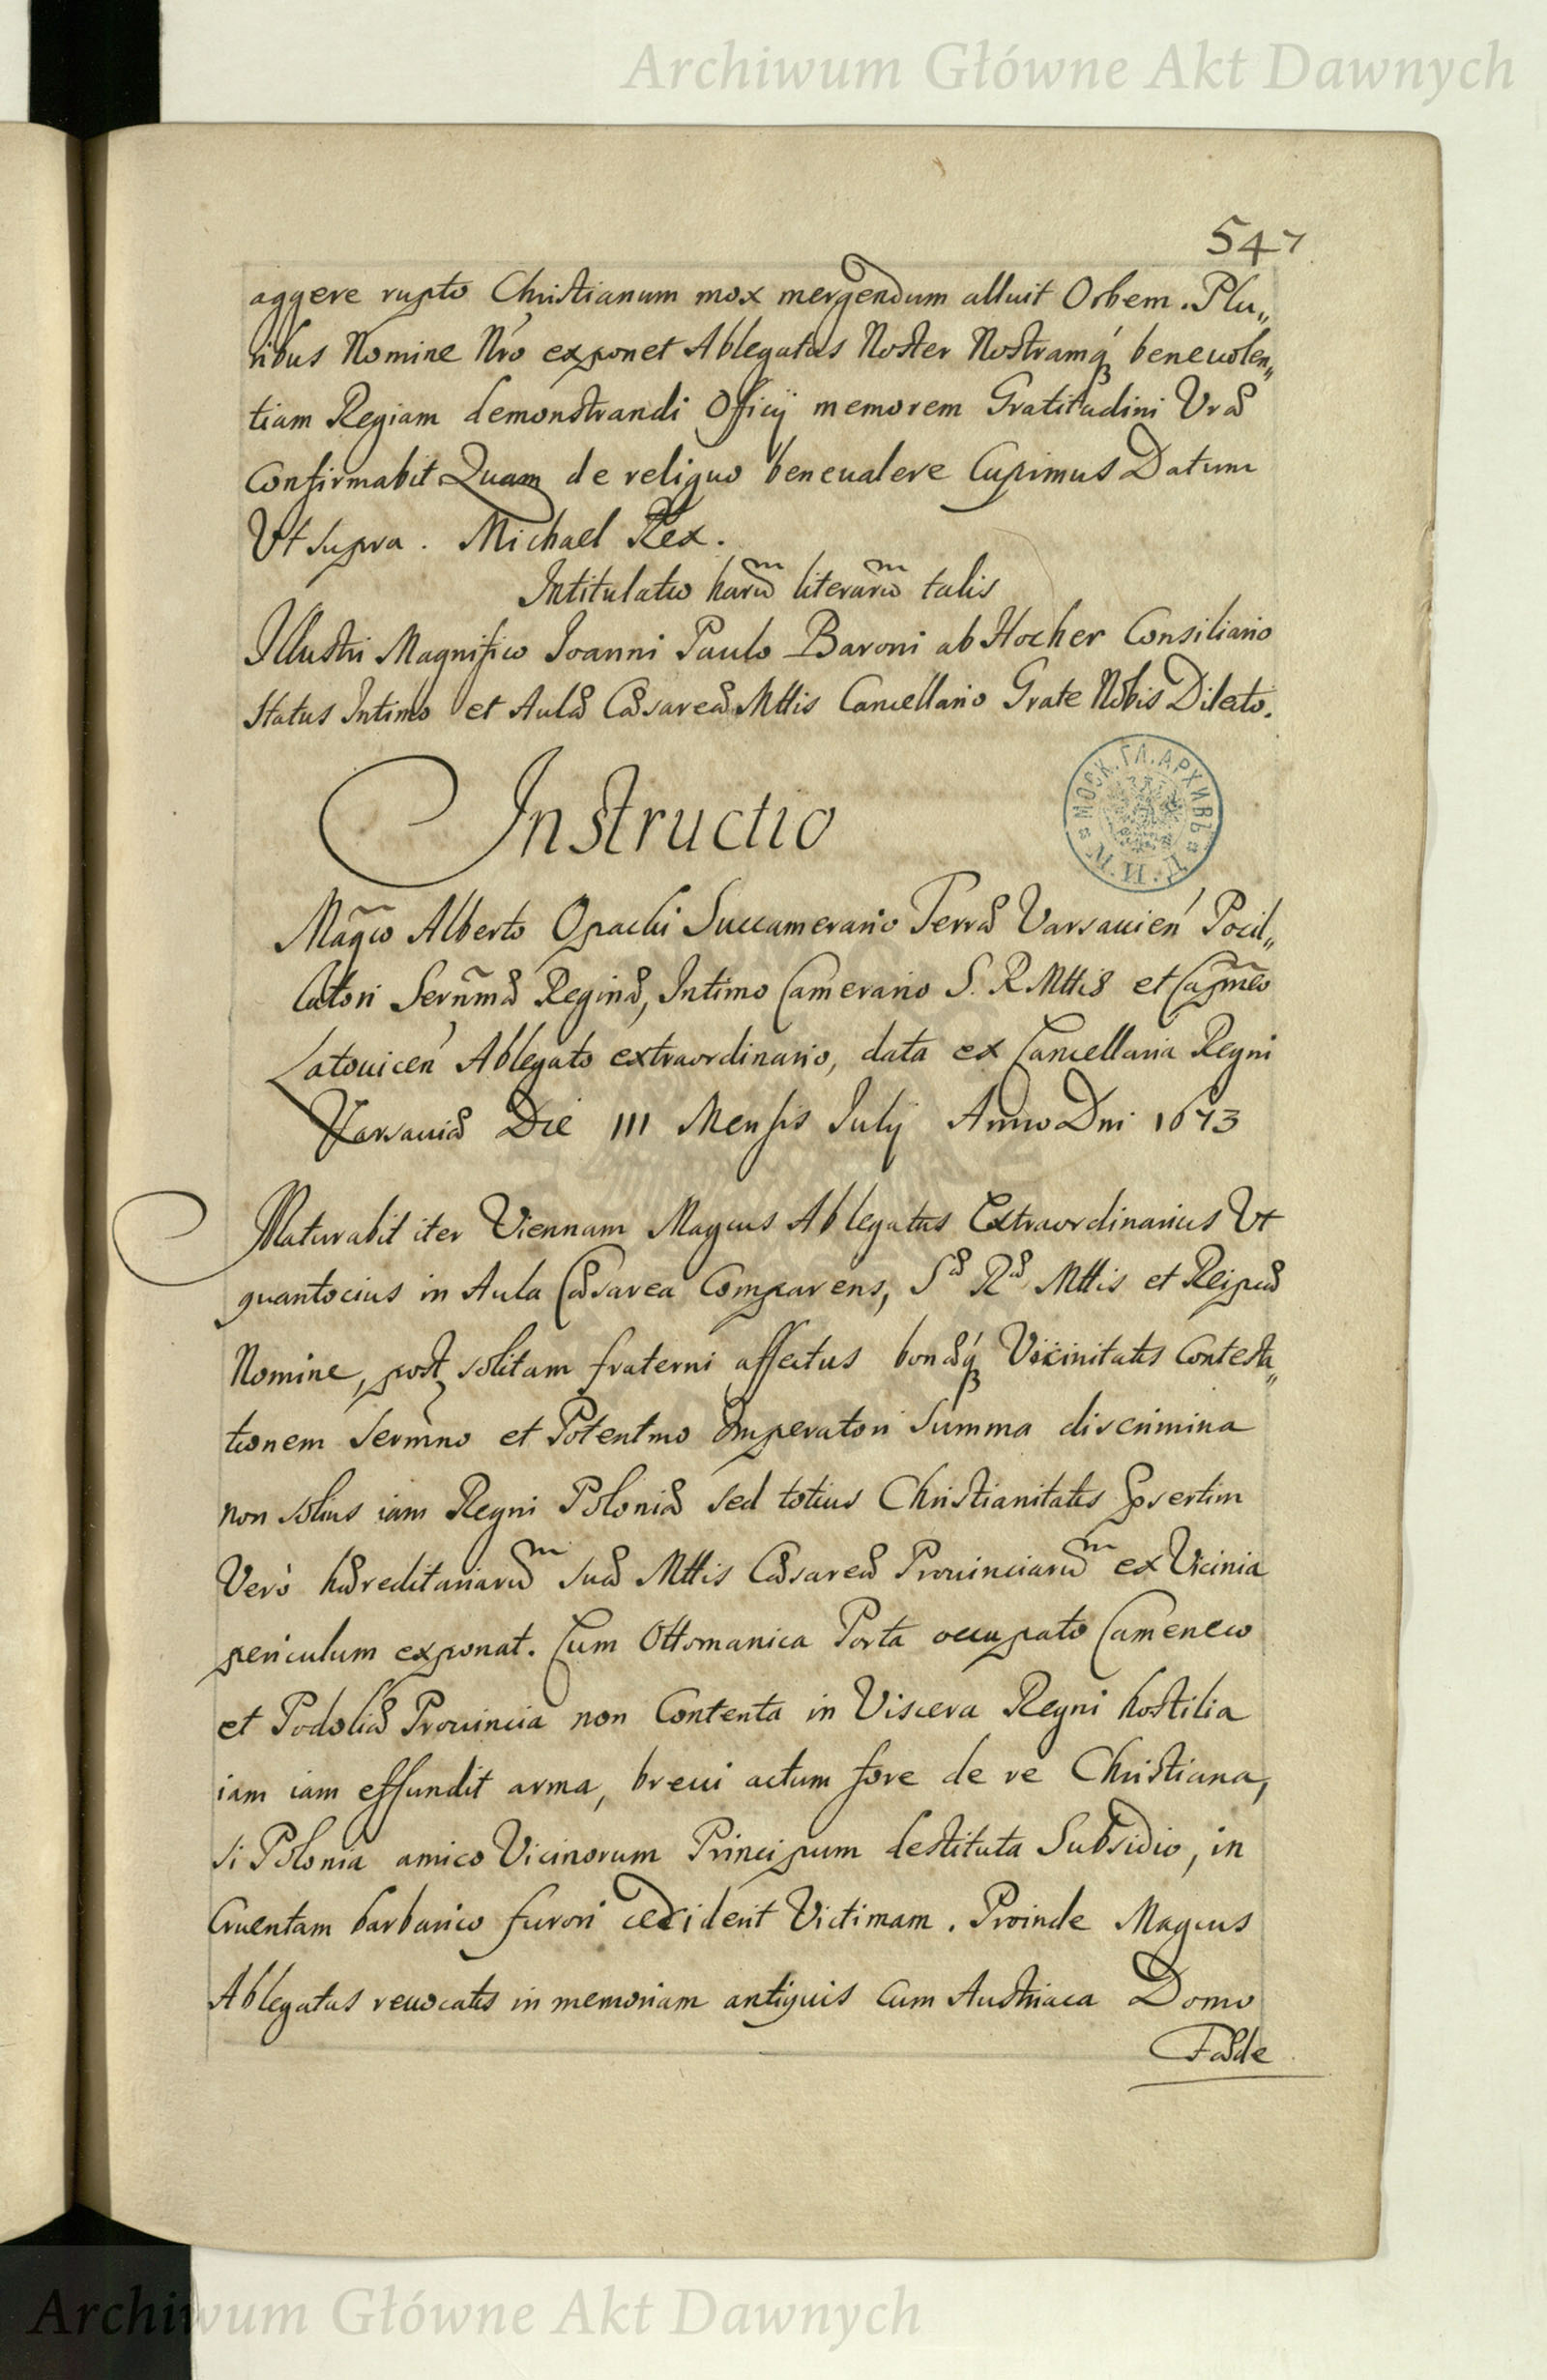 Archiwum Główne Akt Dawnych
547
aggere rupto Christianum mox mergendum alluit Orbem. Plu„
ribus Nomine Nro exponet Ablegatus Noster Nostramq́ beneuolen„
tiam Regiam demonstrandi Officij memorem Gratitudini Vræ
Confirmabit Quam de reliquo beneualere Cupimus Datum
Vt supra. Michael Rex.
Intitulatio harum literarum talis
Illustri Magnifico Joanni Paulo Baroni ab Hocher Consiliario
Status Intimo et Aulæ Cæsareæ Mttis Cancellario Grate Nobis Dilecto.
Instructio
МОСК.ГЛ.АРХИВЪ
Magco Alberto Opacki Succamerario Terræ Varsauien Pocil„
latori Sernmæ Reginæ, Intimo Camerario S. R Mttis et Capneo
Latouicen Ablegato extraordinario, data ex Cancellaria Regni
Varsauiæ Die III Mensis Julij Anno Dni 1673
Maturabit iter Viennam Magcus Ablegatus Extraordinarius Vt
quantocius in Aula Cæsarea Comparens, Sæ Ræ Mttis et Reipcæ
Nomine, post solitam fraterni affectus bonæq́ Vicinitatis Contesta„
tionem Sermno et Potentmo Imperatori Summa discrimina
non solius iam Regni Poloniæ sed totius Christianitatis psertim
Verò hæreditariarum suæ Mttis Cæsareæ Prouinciarum ex Vicinia
periculum exponat. Cum Ottomanica Porta occupato Cameneco
et Podoliæ Prouincia non Contenta in Viscera Regni hostilia
iam iam effundit arma, breui actum fore de re Christiana,
si Polonia amico Vicinorum Principum destituta Subsidio, in
Cruentam barbarico furori cediderit Victimam. Proinde Magcus
Ablegatus reuocatis in memoriam antiquis Cum Austriaca Domo
Fæde
Archiwum Główne Akt Dawnych